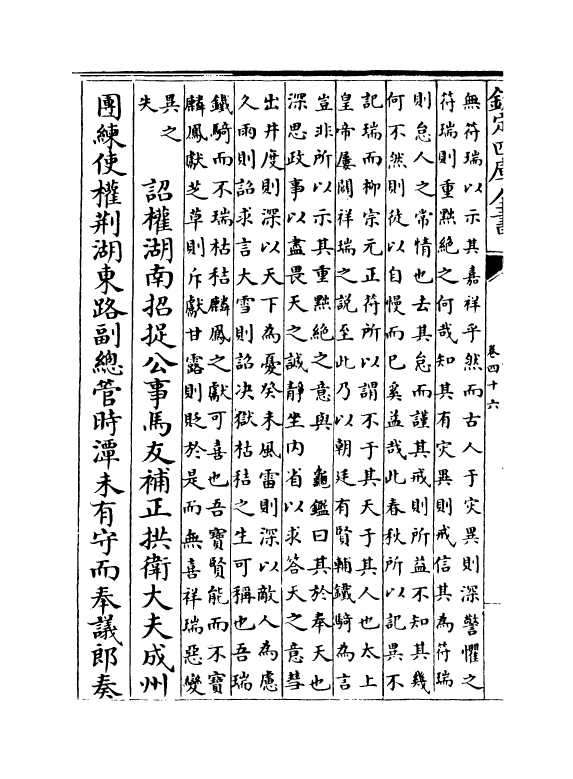 欽定四庫全書
卷四十六
無符瑞以示其嘉祥乎然而古人于灾異則深警懼之
符瑞則重黜絶之何哉知其有灾異則戒信其為符瑞
則怠人之常情也去其怠而謹其戒則所益不知其幾
何不然則徒以自慢而已奚益哉此春秋所以記異不
記瑞而柳宗元正符所以謂不于其天于其人也太上
皇帝屢闢祥瑞之説至此乃以朝廷有賢輔鐵騎為言
豈非所以示其重黜絶之意與 龜鑑曰其於奉天也
深思政事以盡畏天之誠靜坐内省以求答天之意彗
出井度則深以天下為憂癸未風雷則深以敵人為慮
久雨則詔求言大雪則詔决獄枯秸之生可稱也吾瑞
鐵騎而不瑞枯秸麟鳳之獻可喜也吾寶賢能而不寶
麟鳳獻芝草則斥獻甘露則貶於是而無喜祥瑞惡變
異之
失
詔權湖南招捉公事馬友補正拱衛大夫成州
團練使權荆湖東路副總管時潭未有守而奉議郎奏